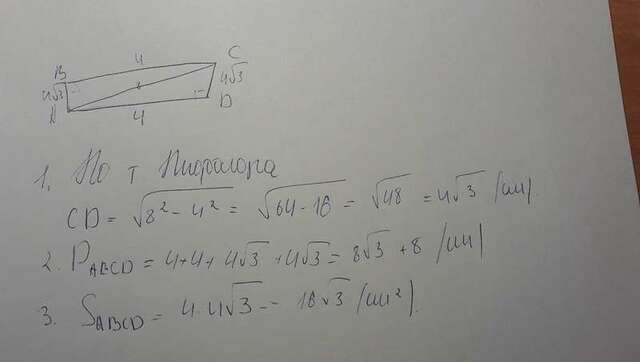 4
B C
4√3 4√3
A D
4
1. По т Пифагора
CD = √8² - 4² = √64 - 16 = √48 = 4√3 (см)
2. P ABCD = 4+4+ 4√3 + 4√3 = 8√3 + 8 (см)
3. S ABCD = 4·4√3 = 16√3 (см²).